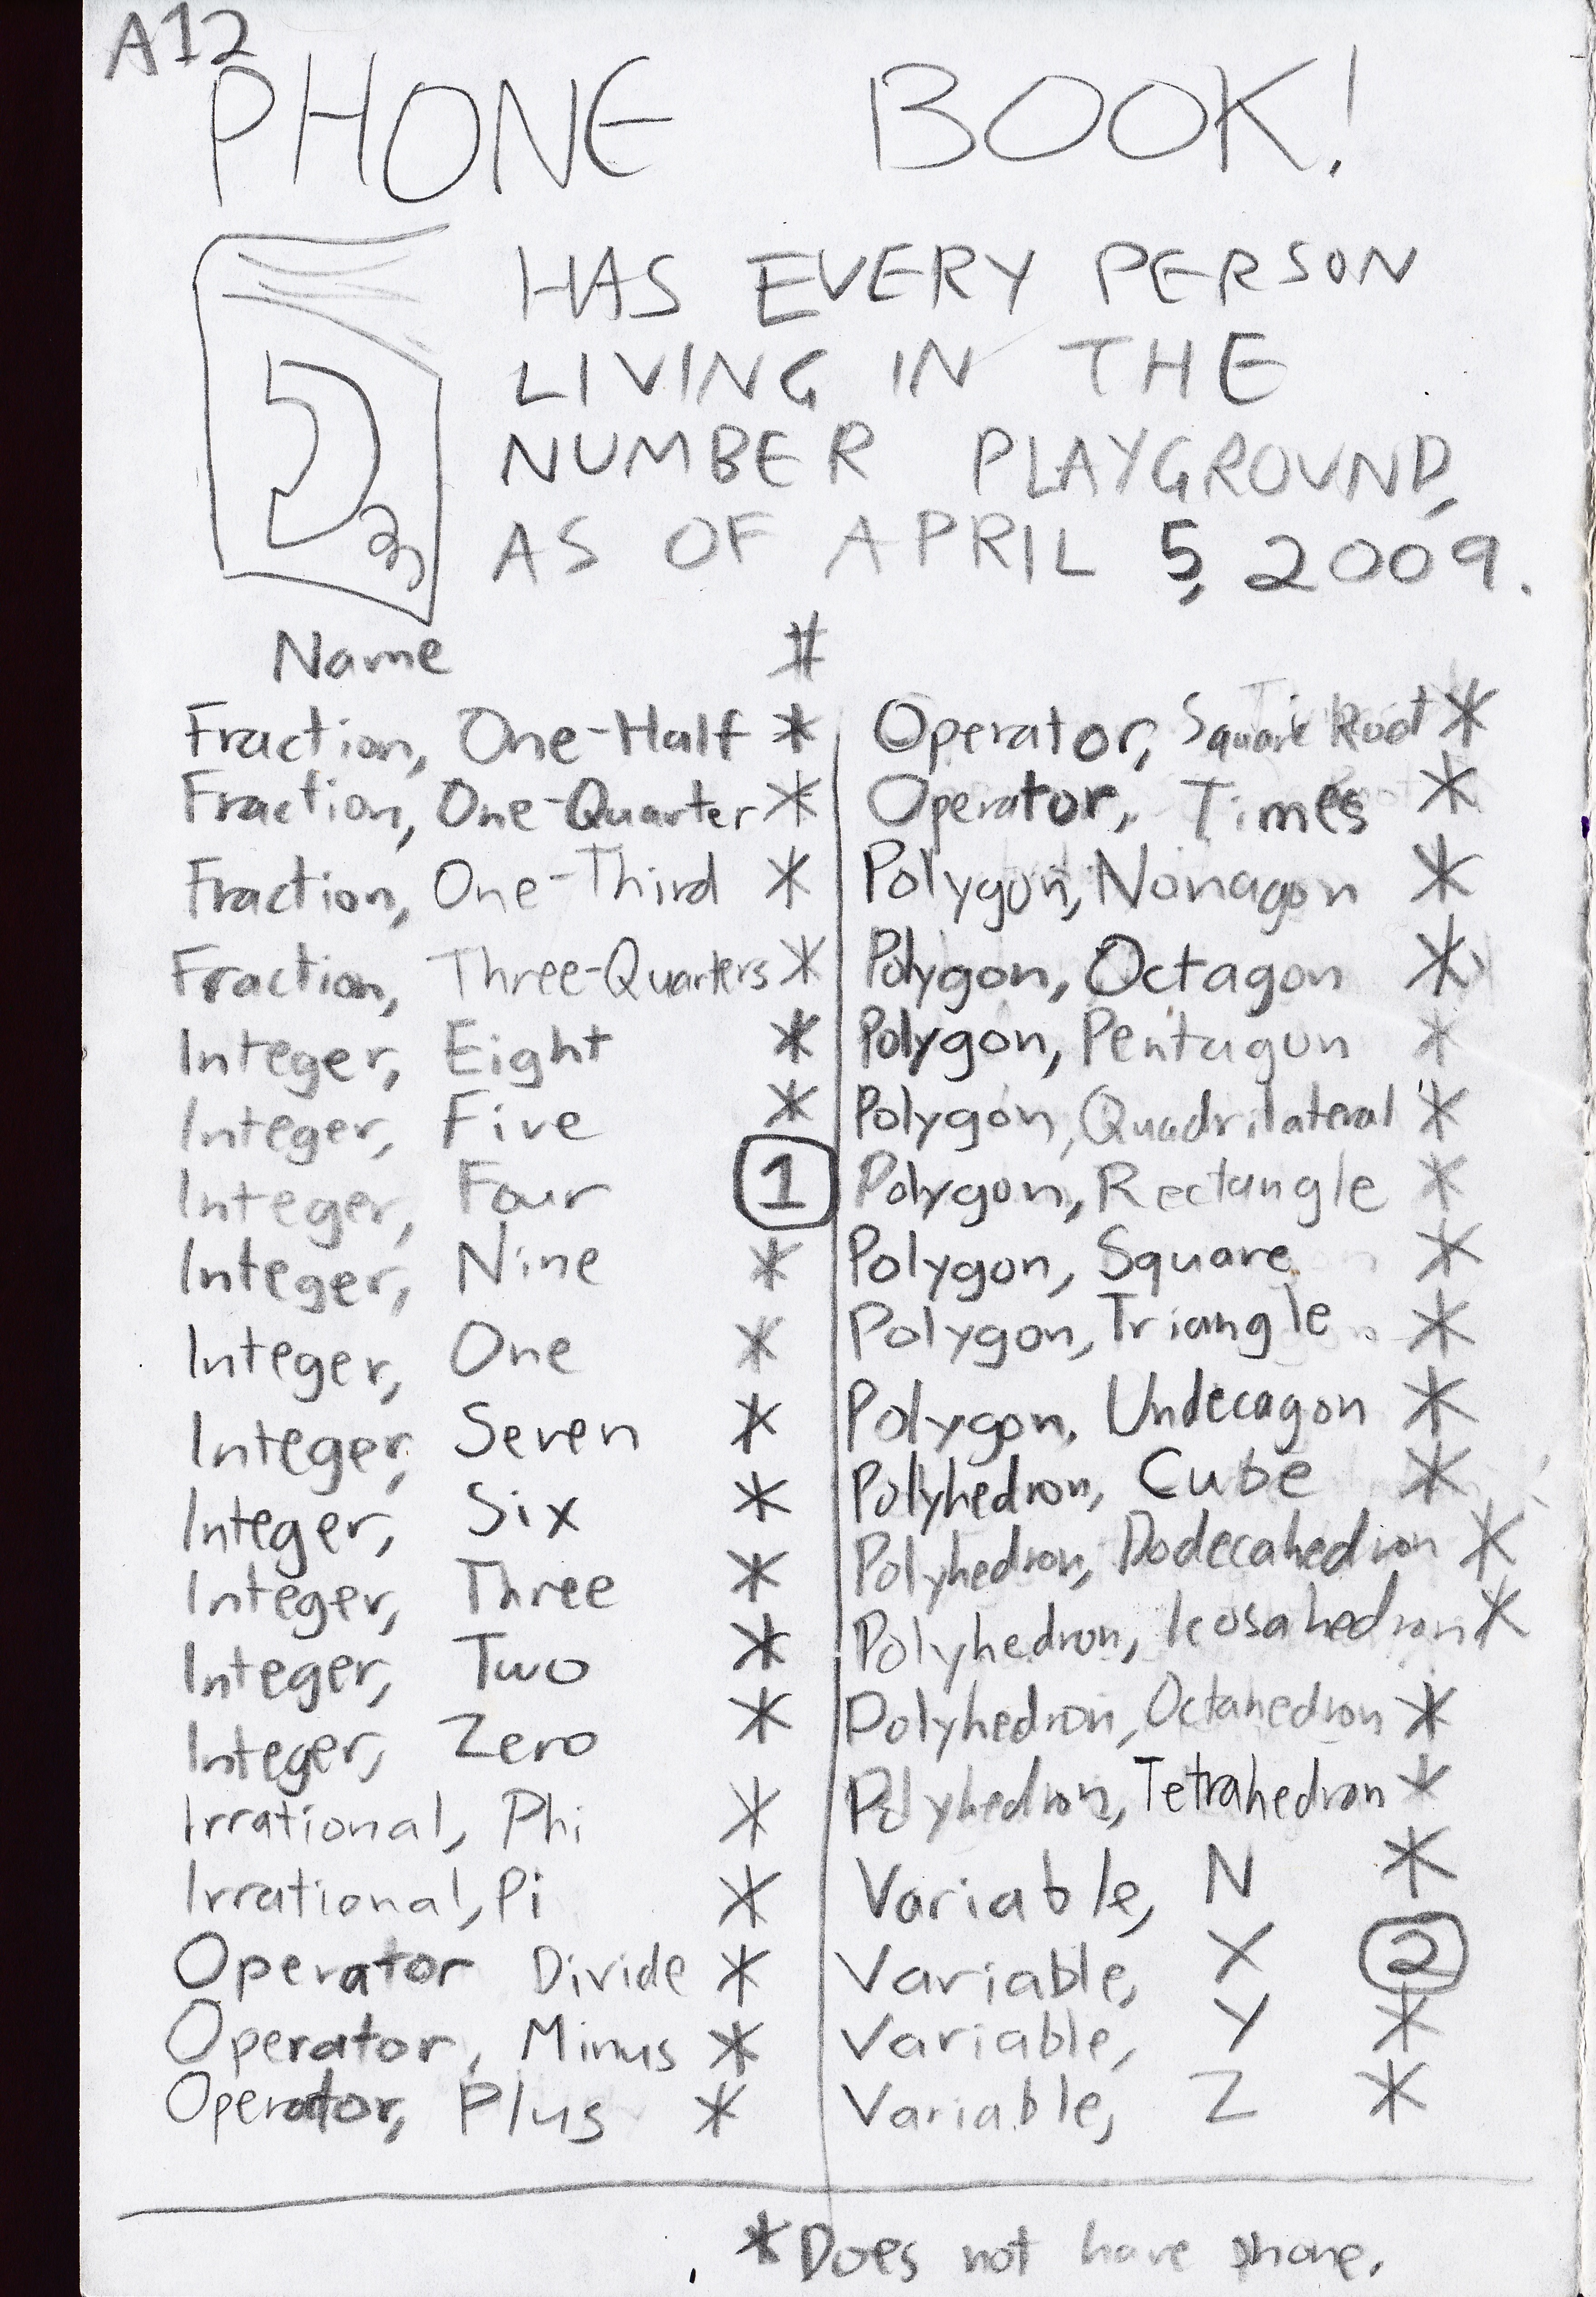 A12
PHONE BOOK!
HAS EVERY PERSON
LIVING IN THE
NUMBER PLAYGROUND,
AS OF APRIL 5, 2009.
Name #
Fraction, One-Half *
Fraction, One-Quarter *
Fraction, One-Third *
Fraction, Three-Quarters *
Integer, Eight *
Integer, Five *
Integer, Four 1
Integer, Nine *
Integer, One *
Integer, Seven *
Integer, Six *
Integer, Three *
Integer, Two *
Integer, Zero *
Irrational, Phi *
Irrational, Pi *
Operator Divide *
Operator, Minus *
Operator, Plus *
Operator, Square Root *
Operator, Times *
Polygon, Nonagon *
Polygon, Octagon *
Polygon, Pentagon *
Polygon, Quadrilateral *
Polygon, Rectangle *
Polygon, Square *
Polygon, Triangle *
Polygon, Undecagon *
Polyhedron, Cube *
Polyhedron, Dodecahedron *
Polyhedron, Icosahedron *
Polyhedron, Octahedron *
Polyhedron, Tetrahedron *
Variable, N *
Variable, X 2
Variable, Y *
Variable, Z *
*Does not have phone.